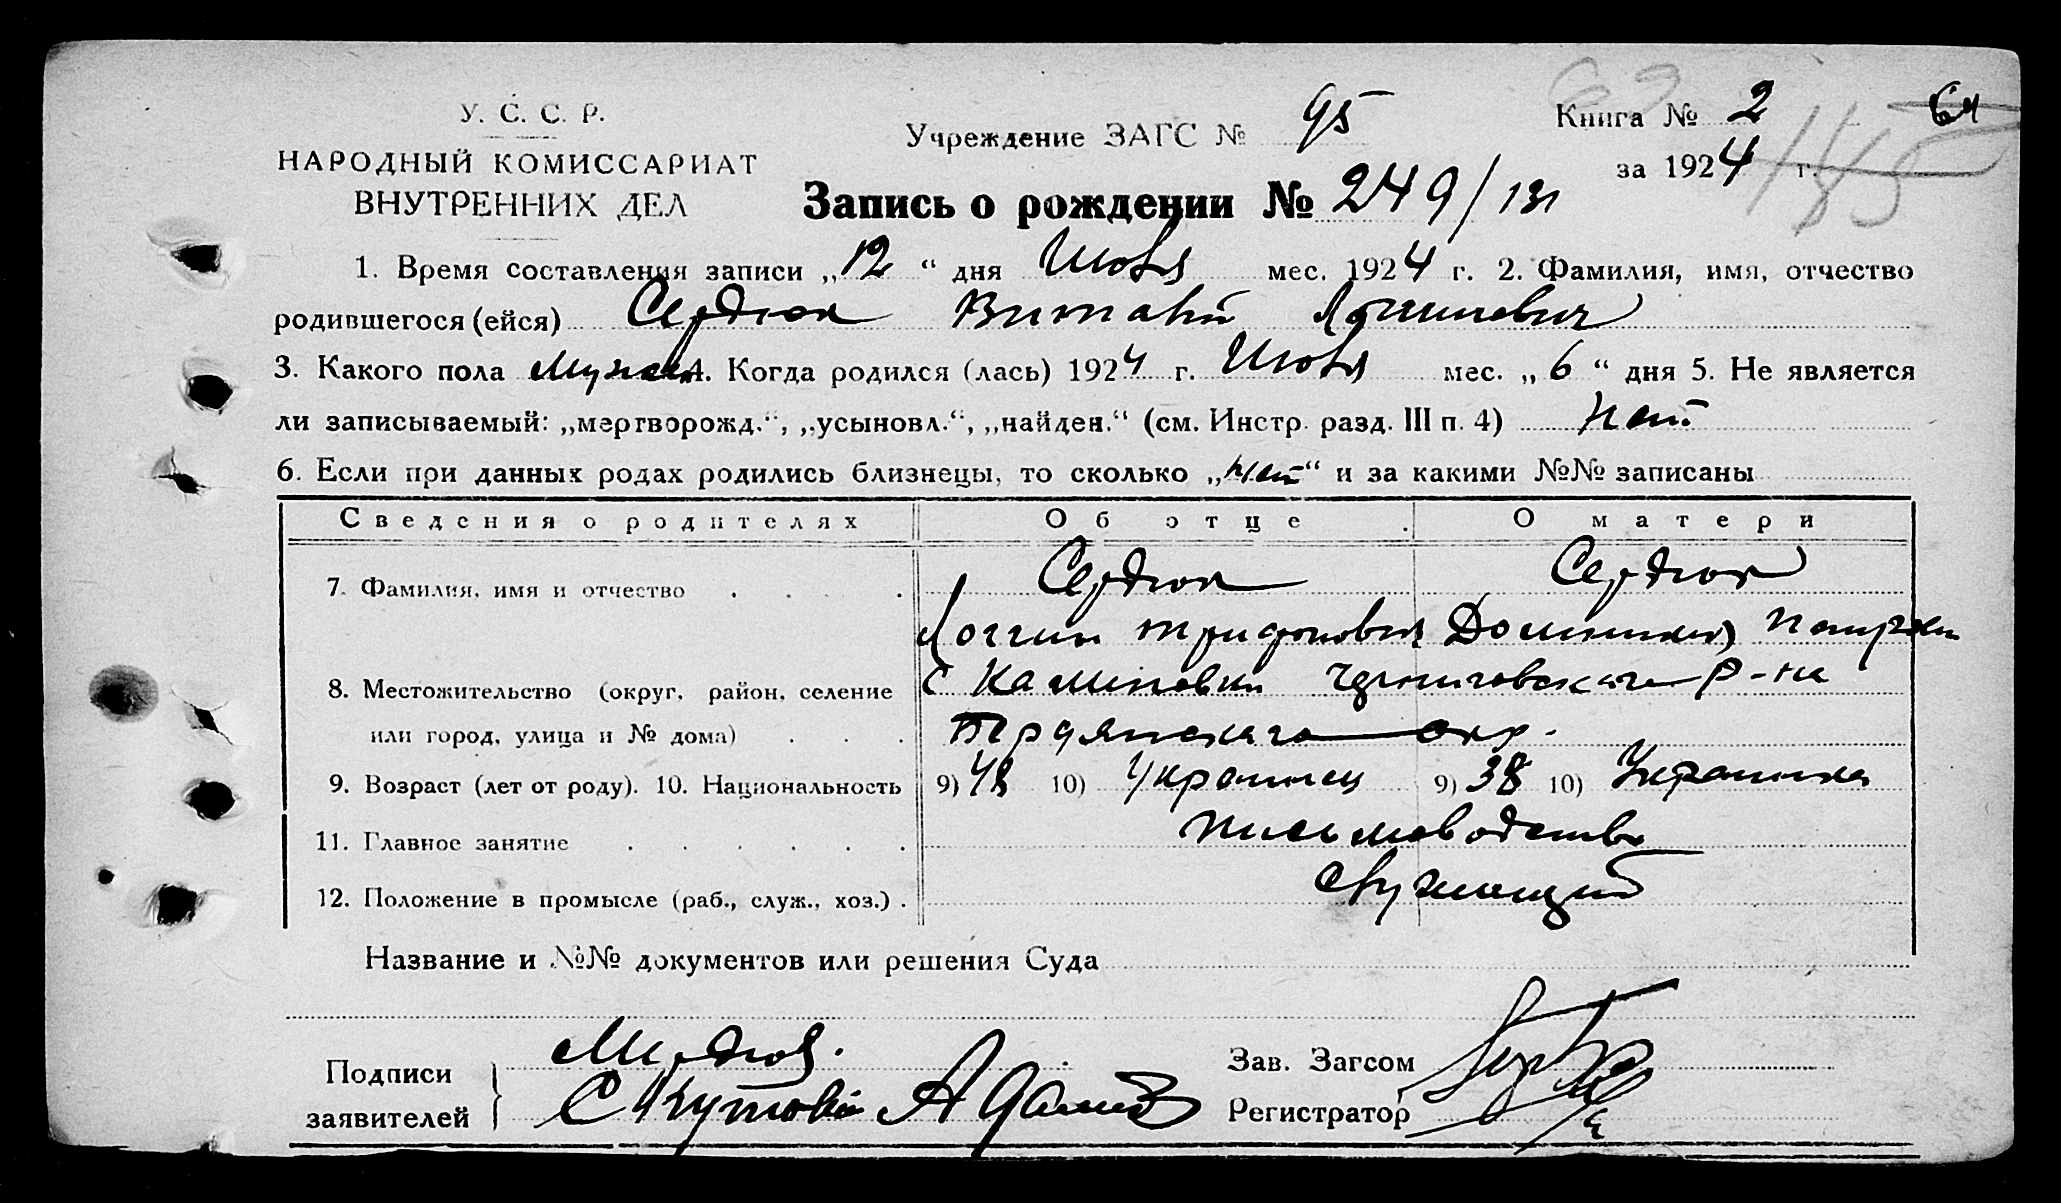 У. С. С. Р.
НАРОДНЫЙ КОМИССАРИАТ
ВНУТРЕННИХ ДЕЛ
Учреждение ЗАГС № 95
Книга № 2 64
за 1924 г. 185
Запись о рождении № 249/131
1. Время составления записи „12“ дня Июля мес. 1924 г. 2. Фамилия, имя, отчество
родившегося (ейся) Сердюк Виталий Логинович
3. Какого пола мужск 4. Когда родился (лась) 1924 г. Июля мес. „6“ дня 5. Не является
ли записываемый: „мертворожд.“, „усыновл.“, „найден.“ (см. Инстр. разд. III п. 4) нет
6. Если при данных родах родились близнецы, то сколько „нет“ и за какими №№ записаны
Сведения о родителях Об отце О матери
7. Фамилия, имя и отчество Сердюк Сердюк
Логгин Трифонович Домникия
8. Местожительство (округ, район, селение с Калиновки Черниговского р-на
или город, улица и № дома) Бердянского окр.
9. Возраст (лет от роду). 10. Национальность 9) 48 10) Украинец 9) 38 10) Украинка
11. Главное занятие письмоводство
12. Положение в промысле (раб., служ., хоз.) служащий
Название и №№ документов или решения Суда
Подписи
заявителей
Зав. Загсом
Регистратор